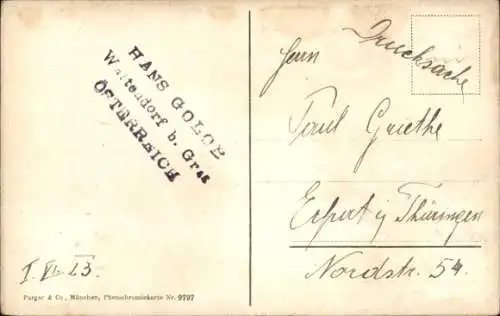 HANS GOLOB
Waltendorf b. Graz
ÖSTERREICH
Drucksache
Herrn
Paul Goethe
Erfurt i/ Thüringen
Nordstr. 54.
I. VI. 23.
Purger & Co., München, Photochromiekarte Nr. 9797